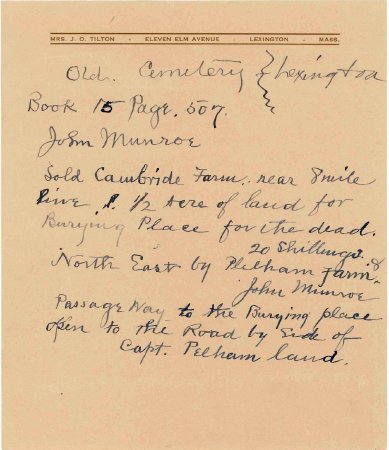 MRS. J. O. TILTON - ELEVEN ELM AVENUE - LEXINGTON - MASS.
Old. Cemetery } Lexington
Book 15 Page. 507.
John Munroe
Sold Cambride Farm. near 8 mile
line 1. 1/2 Acre of land for
Burying Place for the dead.
20 Shillings.
North East by Pelham Farm &
John Munroe
Passage Way to the Burying place
open to the Road by Side of
Capt. Pelham land.